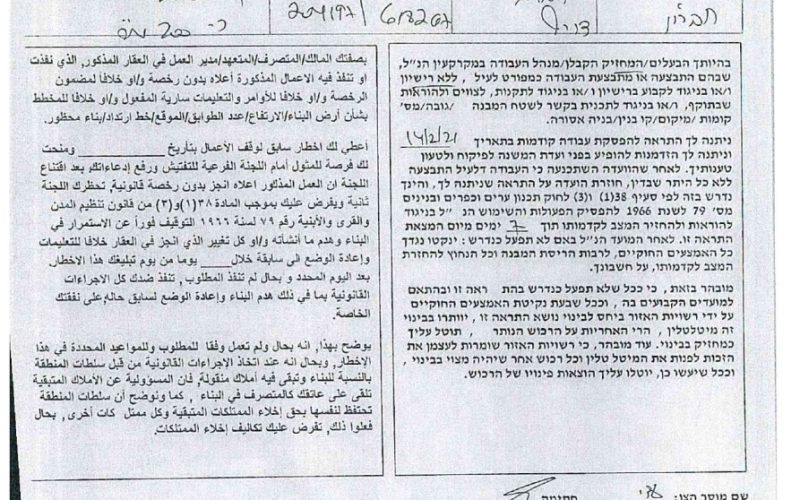 חברון
204197
618207
בהיותך הבעלים/המחזיק הקבלן/מנהל העבודה במקרקעין הנ"ל,
שבהם התבצעה או מתבצעת העבודה כמפורט לעיל, ללא רישיון
ו/או בניגוד לקבוע ברישיון ו/או בניגוד לתקנות, לצווים ולהוראות
שבתוקף, ו/או בניגוד לתכנית בקשר לשטח המבנה /גובה/מס'
קומות /מיקום/קו בנין/בניה אסורה.
ניתנה לך התראה להפסקת עבודה קודמות בתאריך 14/2/21
וניתנה לך הזדמנות להופיע בפני ועדת המשנה לפיקוח ולטעון
טענותיך. לאחר שהוועדה השתכנעה כי העבודה דלעיל התבצעה
ללא כל היתר שבדין, חוזרת הועדה על התראה שניתנה לך, והינך
נדרש בזה לפי סעיף 38(1) ו(3) לחוק תכנון ערים וכפרים ובנינים
מס' 79 לשנת 1966 להפסיק הפעולות והשימוש הנ"ל בניגוד
להוראות ולהחזיר המצב לקדמותו תוך 7 ימים מיום המצאת
התראה זו. לאחר המועד הנ"ל באם לא תפעל כנדרש: ינקטו נגדך
כל האמצעים החוקיים, לרבות הריסת המבנה וכל הנחוץ להחזרת
המצב לקדמותו, על חשבונך.
מובהר בזאת, כי ככל שלא תפעל כנדרש בהת ראה זו ובהתאם
למועדים הקבועים בה, וככל שבעת נקיטת האמצעים החוקיים
על ידי רשויות האזור ביחס לבינוי נושא התראה זו, יוותרו בבינוי
זה מיטלטלין, הרי האחריות על הרכוש הנותר, תוטל עליך
כמחזיק בבינוי. עוד מובהר, כי רשויות האזור שומרות לעצמן את
הזכות לפנות את המיטל טלין וכל רכוש אחר שיהיה מצוי בבינוי,
וככל שיעשו כן, יוטלו עליך הוצאות פינויו של הרכוש.
بصفتك المالك/المتصرف/المتعهد/مدير العمل في العقار المذكور, الذي نفذت
او تنفذ فيه الاعمال المذكورة أعلاه بدون رخصة و/او خلافا لمضمون
الرخصة و/او خلافا للأوامر والتعليمات سارية المفعول و/او خلافا للمخطط
بشأن أرض البناء/الارتفاع/عدد الطوابق/الموقع/خط ارتداد/بناء محظور.
أعطي لك اخطار سابق لوقف الأعمال بتاريخ ومنحت
لك فرصة للمثول أمام اللجنة الفرعية للتفتيش ورفع إدعاءاتك, بعد اقتناع
اللجنة ان العمل المذكور اعلاه انجز بدون رخصة قانونية, تحظرك اللجنة
ثانية ويفرض عليك بموجب المادة ٣٨(١)و(٣) من قانون تنظيم المدن
والقرى والأبنية رقم ٧٩ لسنة ١٩٦٦ التوقيف فوراً عن الاستمرار في
البناء وهدم ما أنشأته و/او كل تغيير الذي انجز في العقار خلافا للتعليمات
وإعادة الوضع الى سابقة خلال يوما من يوم تبليغك هذا الاخطار.
بعد اليوم المحدد و بحال لم تنفذ المطلوب, تنفذ ضدك كل الاجراءات
القانونية بما في ذلك هدم البناء وإعادة الوضع لسابق حاله, على نفقتك
الخاصة.
يوضح بهذا, انه بحال ولم تعمل وفقا للمطلوب وللمواعيد المحددة في هذا
الإخطار, وبحال انه عند اتخاذ الاجراءات القانونية من قبل سلطات المنطقة
بالنسبة للبناء وتبقى فيه أملاك منقولة, فان المسؤولية عن الاملاك المتبقية
تلقى على عاتقك كالمتصرف في البناء, كما ونوضح أن سلطات المنطقة
تحتفظ لنفسها بحق إخلاء الممتلكات المتبقية وكل ممتل كات أخرى, بحال
فعلوا ذلك, تفرض عليك تكاليف إخلاء الممتلكات.
שם מוסר הצו: חתימה